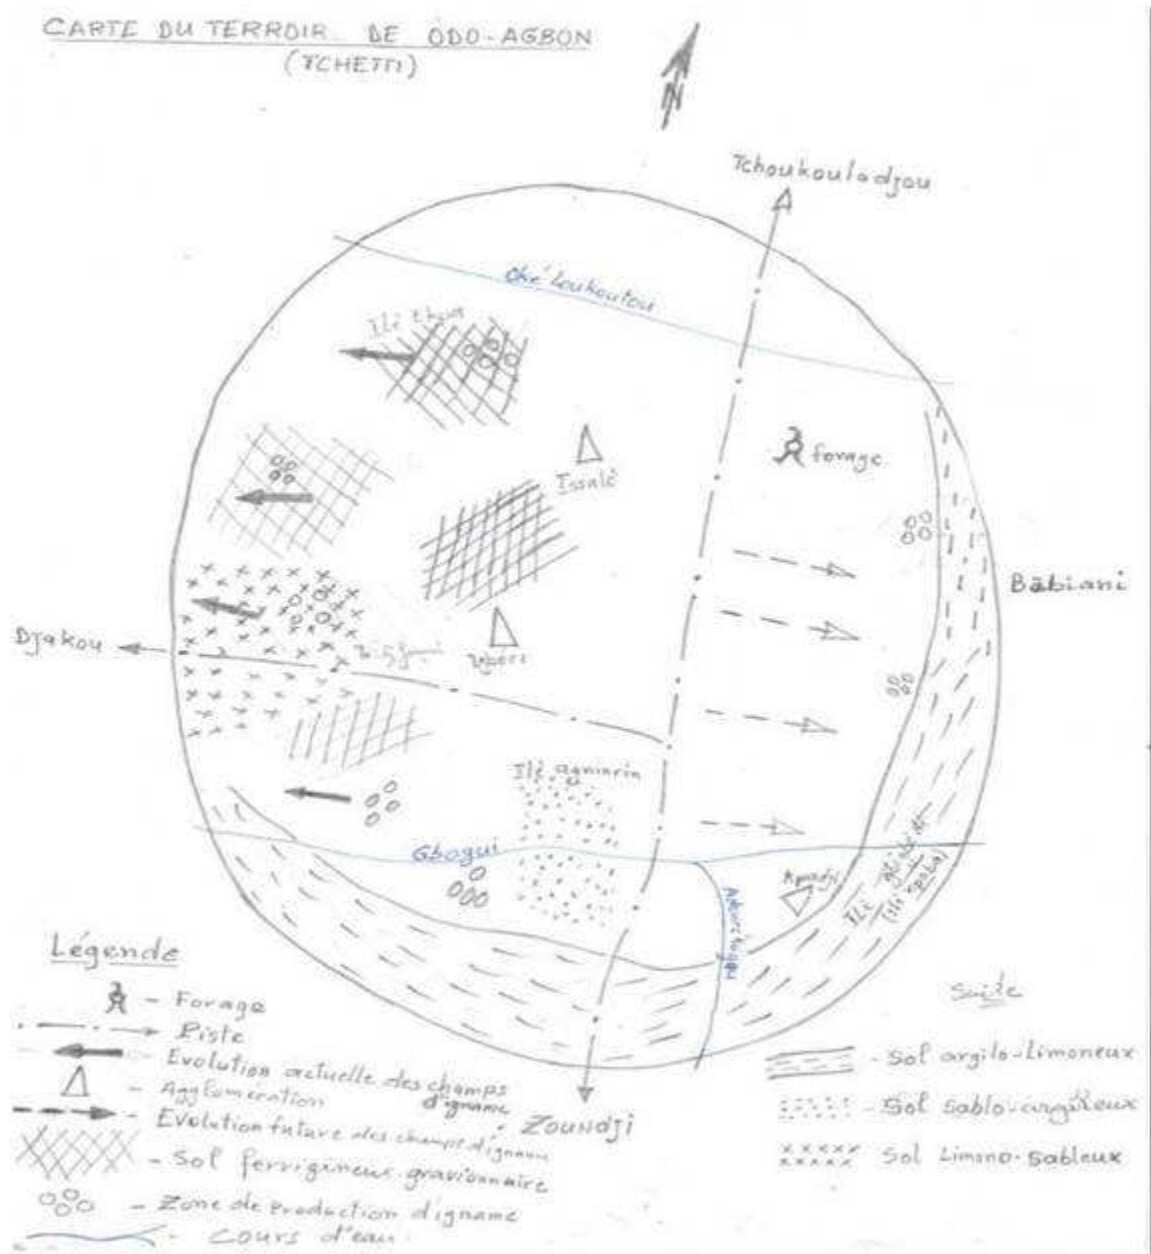 CARTE DU TERROIR DE ODO-AGBON
(TCHETTI)
N
Tchoukouladjou
Oké Loukoutou
Ilè
Issalè
forage
Babiani
Djakou
Ilè agninrin
Gbogui
Kpadji
Ilè
(Ilè kpaba)
Zoundji
Légende
- Forage
- Piste
- Evolution actuelle des champs d'igname
- Agglomération
- Evolution future des champs d'igname
- Sol ferrigineux gravionnaire
- Zone de Production d'igname
- Cours d'eau
Suite
- Sol argilo-limoneux
- Sol Sablo-argileux
Sol Limono-Sableux